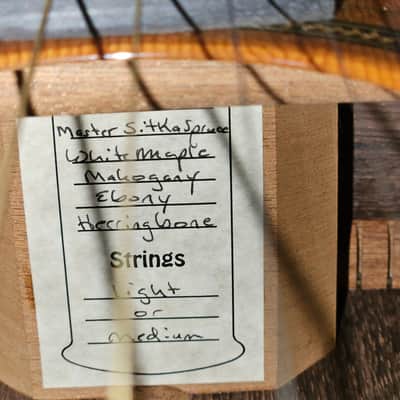 Master Sitka Spruce
White Maple
Mahogany
Ebony
Herringbone
Strings
Light
or
medium